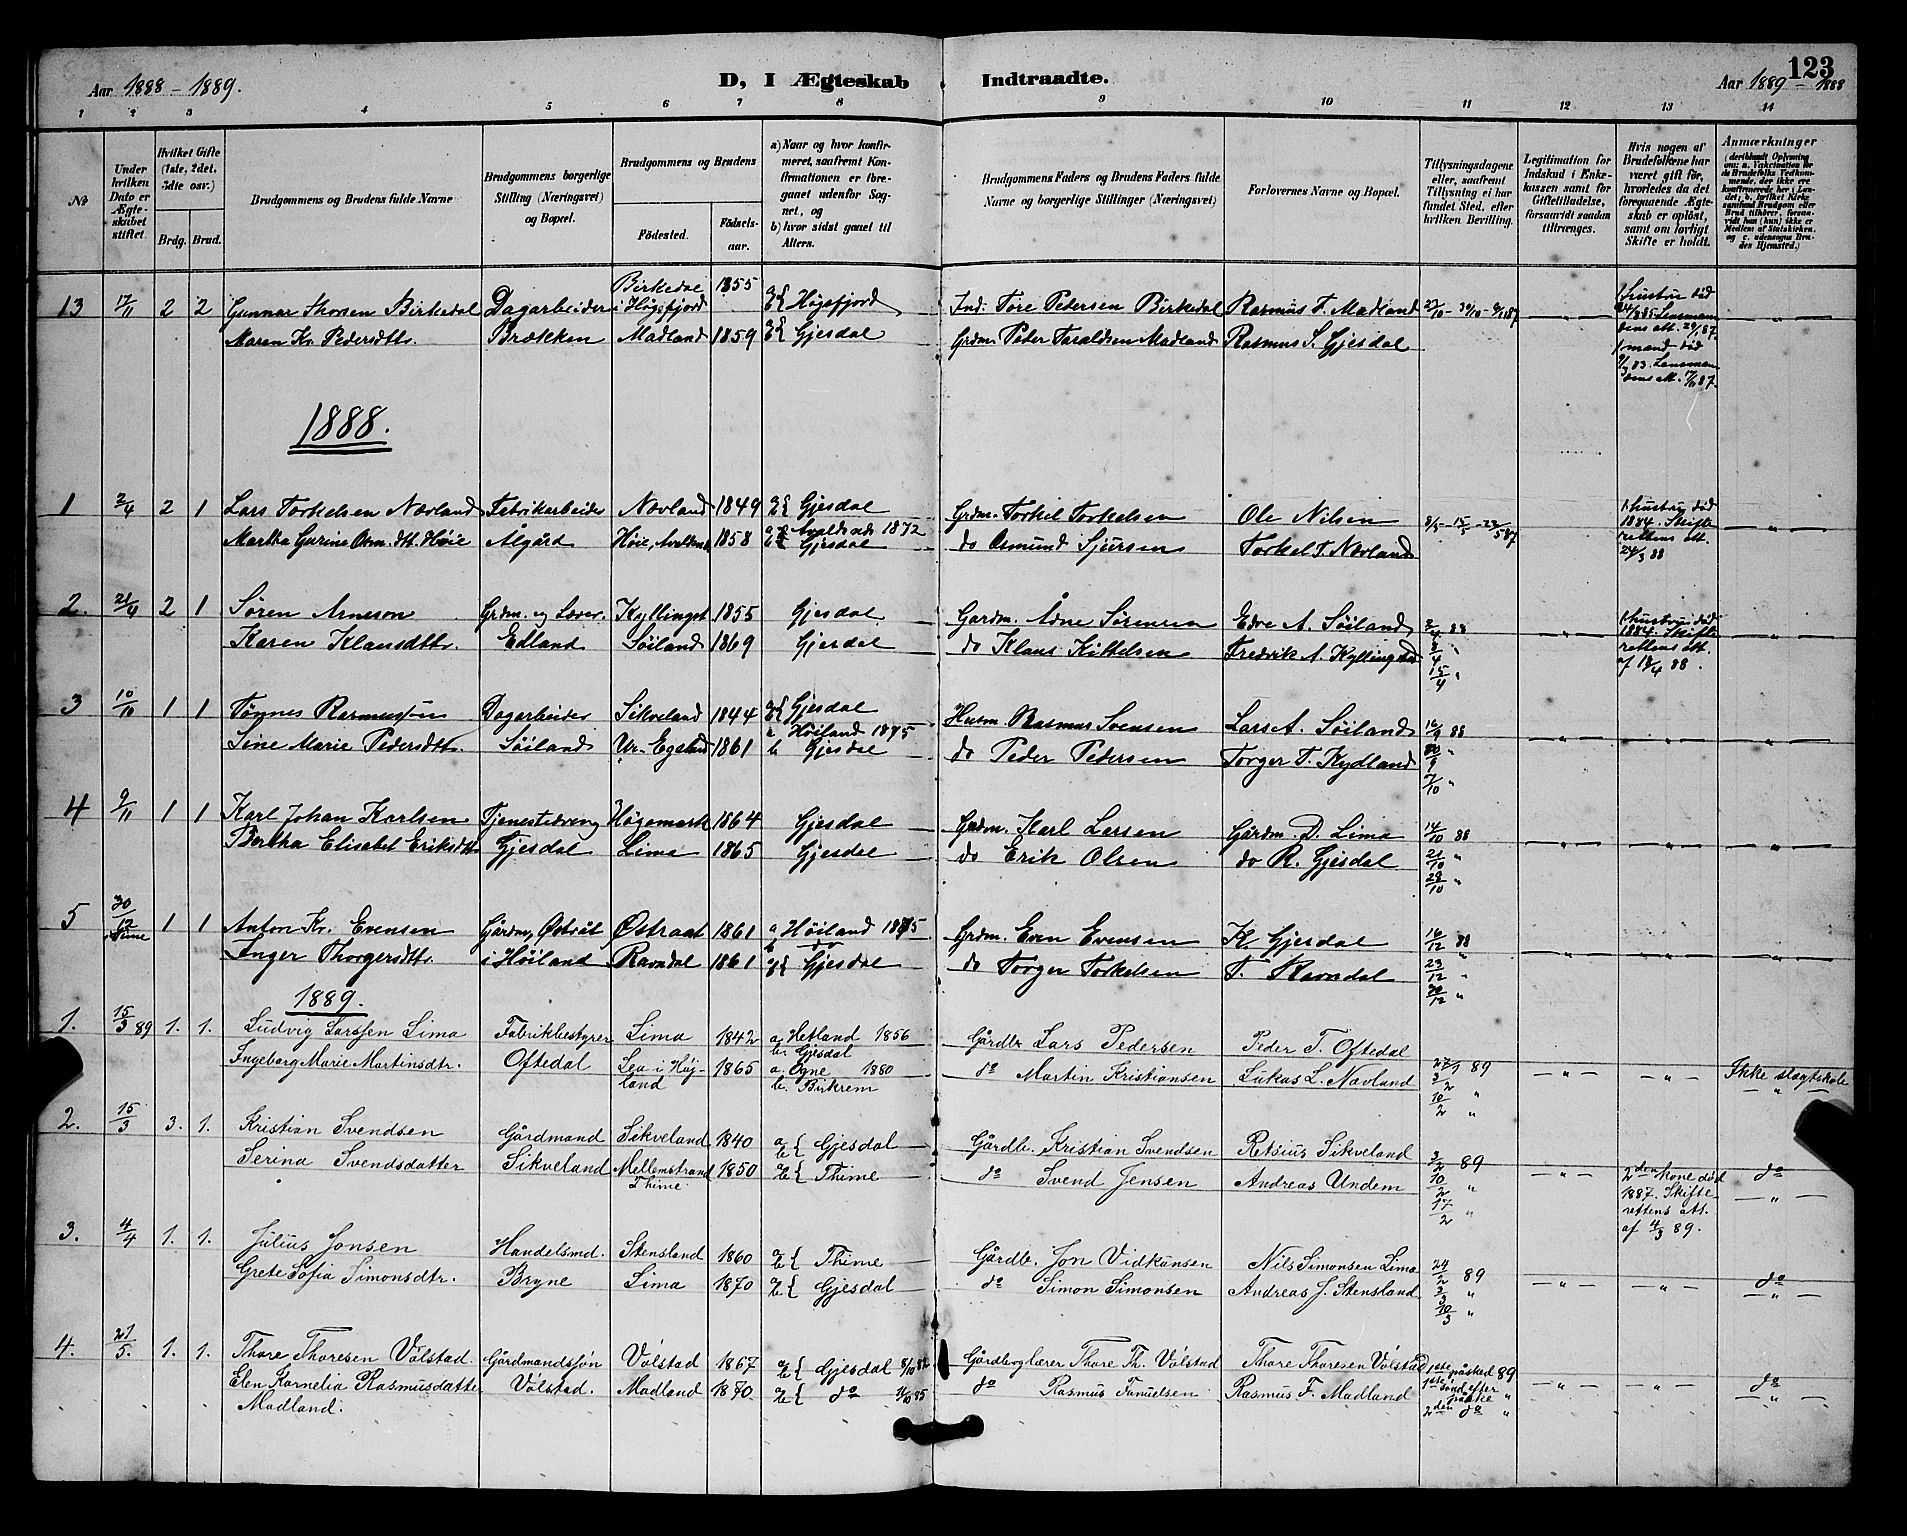 Aar 1888 - 1889.
D, I Ægteskab Indtraadte.
123
Aar 1889 - 1888
1 2 3 4 5 6 7 8 9 10 11 12 13 14
No
Under hvilken Dato er Ægteskabet stiftet.
Hvilket Gifte (1ste, 2det, 3dte osv.)
Brdg. Brud.
Brudgommens og Brudens fulde Navne
Brudgommens borgerlige Stilling (Næringsvei) og Bopæl.
Brudgommens og Brudens
Fødested. Fødsels-aar.
a) Naar og hvor konfirmeret, saafremt Konfirmationen er foregaaet udenfor Sognet, og
b) hvor sidst gaaet til Alters.
Brudgommens Faders og Brudens Faders fulde Navne og borgerlige Stillinger (Næringsvei)
Forlovernes Navne og Bopæl.
Tillysningsdagene eller, saafremt Tillysning ei har fundet Sted, efter hvilken Bevilling.
Legitimation for Indskud i Enkekassen samt for Giftetilladelse, forsaavidt saadan tiltrænges.
Hvis nogen af Brudefolkene har været gift før, hvorledes da det foregaaende Ægteskab er opløst, samt om lovligt Skifte er holdt.
Anmærkninger
(deriblandt Oplysning om: a. Vakcination for de Brudefolks Vedkommende, der ikke ere konfirmerede her i Landet, b. hvilket Kirkesamfund Brudgom eller Brud tilhører, forsaavidt han (hun) ikke er Medlem af Statskirken, og c. udensogns Brudes Hjemsted.)
13 17/11 2 2 Gunnar Thorsen Birkedal Dagarbeider Birkedal i Høgsfjord 1855 a b { Høgsfjord Ind. Tore Pedersen Birkedal Rasmus T. Madland
Maren Kr. Pedersdtr. Brækken Madland 1859 a b { Gjesdal Grdm. Peder Taraldsen Madland Rasmus S. Gjesdal
1888.
1 2/4 2 1 Lars Torkelsen Nævland Fabrikarbeider Nævland 1849 a b { Gjesdal Grdm. Torkel Torkelsen Ole Nilsen
1 hustru død 1884. Skifterettens att. 24/3 88
Martha Gurine Osm.dtt. Høie Ålgård Høie, Avaldsnes 1858 a Avaldsnes 1872 b Gjesdal do Osmund Sjursen Torkel T. Nævland
2. 21/4 2 1 Søren Arneson Grdm. og Lærer Kyllingst 1855 Gjesdal Gardm. Ådne Sørensen Edve A. Søiland 2/4 88
1 hustru død 1884. Skifterettens att. af 18/4 88.
Karen Klausdttr. Edland Søiland 1869 Gjesdal do Klaus Kittelsen Fredrik A. Kyllingstad
15/4 "
3 10/10 1 1 Tønnes Rasmussen Dagarbeider Sikveland 1844 a b { Gjesdal Husm. Rasmus Svensen Lars A. Søiland 16/9 88
Sine Marie Pedersdtr. Søiland Ur. Egesund 1861 a Høiland 1875 b Gjesdal do Peder Pedersen Torger T. Kydland
7/10 "
4 9/11 1 1 Karl Johan Karlsen Tjenestedreng Høgemark 1864 Gjesdal Grdm. Karl Larsen Gårdm. D. Lima 14/10 88
Bertha Elisabet Eriksdtr Gjesdal Lima 1865 Gjesdal do Erik Olsen do R. Gjesdal 21/10 "
28/10 "
5 30/12 Time 1 1 Anton Kr. Evensen Gårdm. Østråt Østraat 1861 a Høiland 1875 b do Grdm. Even Evensen K. Gjesdal 16/12 88
Inger Thorgersdtr. i Høiland Ravndal 1861 a b { Gjesdal do Torger Torkelsen T. Ravndal 23/12 "
30/12 "
1889.
1. 15/3 89 1. 1. Ludvig Larssen Lima Fabrikbestyrer Lima 1842 a. Hetland 1856 b. Gjesdal Gårdbr. Lars Pedersen Peder T. Oftedal
Ingeborg Marie Martinsdtr. Oftedal Lea i Høiland 1865 a. Ogne 1880 b. Birkrem do Martin Kristiansen Lukas L. Nævland 27/1 89 Ikke slægtskab
3/2
10/2 "
2. 15/3 3. 1. Kristian Svendsen Gårdmand Sikveland 1840 a b { Gjesdal Gårdbr. Kristian Svendsen Retsius Sikveland 3/2 89
Serina Svendsdatter Sikveland Mellemstrand Thime 1850 a b { Thime do Svend Jensen Andreas Undem 10/2 " 2den kone død 1887. Skifterettens att. af 4/3 89. do
17/2 "
3. 4/4 1. 1. Julius Jonsen Handelsmd. Stensland 1860 a b { Thime Gårdbr. Jon Vidkunsen Nils Simonsen Lima 24/2 89
Grete Sofia Simonsdtr. Bryne Lima 1870 a b { Gjesdal do Simon Simonsen Andreas J. Stensland 3/3 " do
10/3 "
4. 27/5. 1. 1. Thore Thoresen Vølstad. Gårdmandssøn Vølstad 1867 a b { Gjesdal 8/10 82 Gårdbr og lærer Thore Th. Vølstad Thore Thoresen Vølstad 1ste påsked 89
Elen Kornelia Rasmusdatter Madland. Vølstad. Madland 1870. a b { do Rasmus Tanuelsen Rasmus F. Madland 1ste sønd. efter påske " do
2den do "